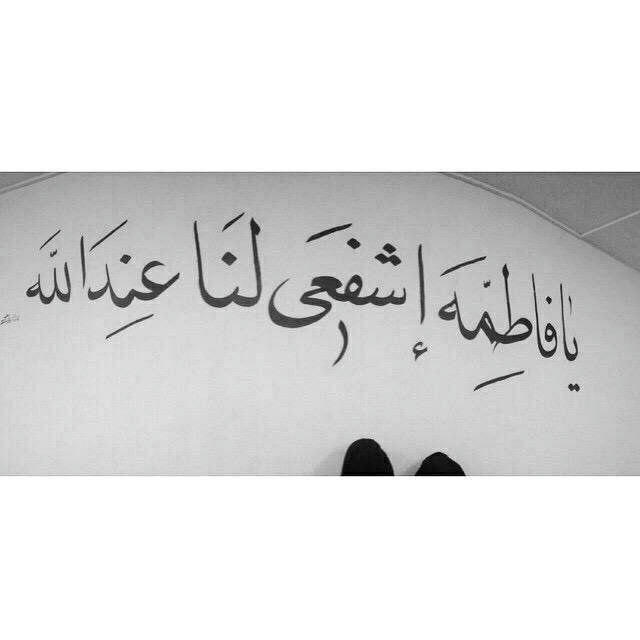 يا فاطِمِّهَ إشفَعَی لَنَا عِندَ اللَّه